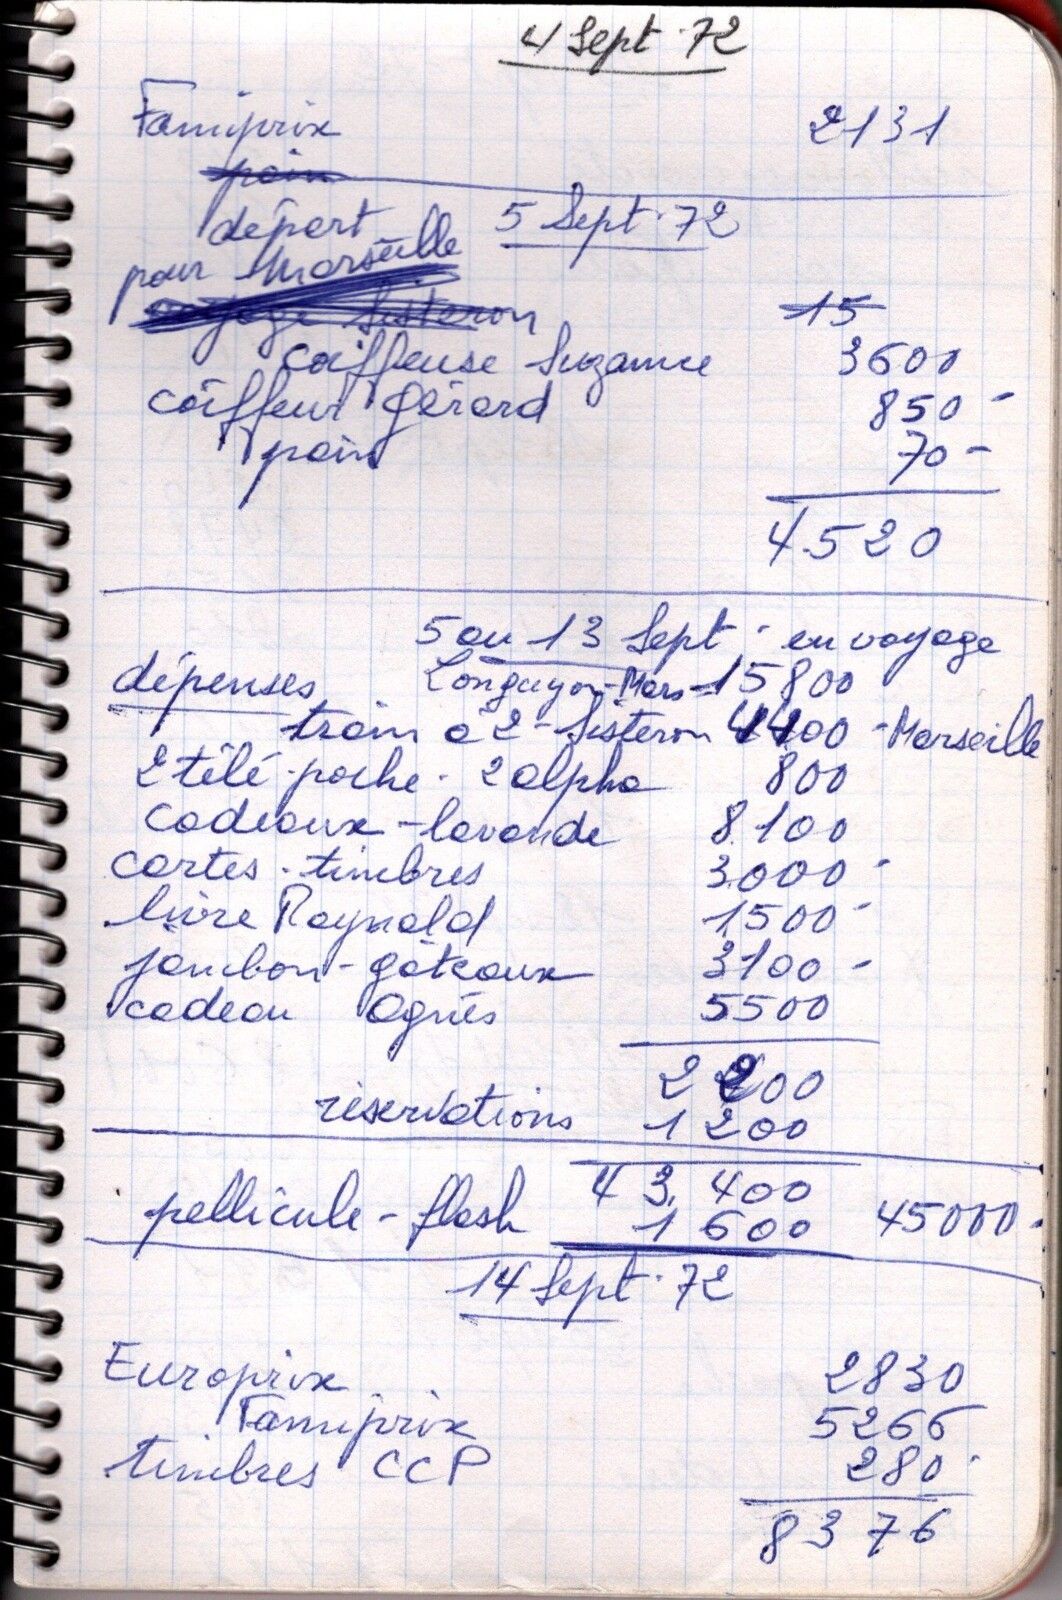 4 Sept. 72
Famiprix 2131
pain
départ 5 Sept. 72
pour Marseille
voyage Sisteron 15
coiffeuse Suzanne 3600
coiffeur Gérard 850 -
pain 70 -
4520
5 au 13 Sept. en voyage
dépenses Longuyon-Mars- 15800
train à 2 - Sisteron 4400 - Marseille
2 télé-poche. 2 alpha 800
cadeaux - lavande 8.100
cartes - timbres 3.000 -
livre Raynald 1500 -
jambon - gâteaux 3100 -
cadeau Agnès 5500
2200
réservations 1200
43.400
pellicule - flash 1600 45000 -
14 Sept. 72
Europrix 2830
Famiprix 5266
timbres CCP 280 -
8376